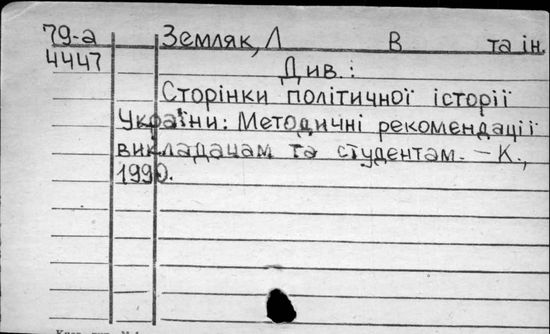 79-а Земляк, Л В та ін.
4447
Див.:
Сторінки політичної історії
України: Методичні рекомендації
викладачам та студентам. – К.,
1990.